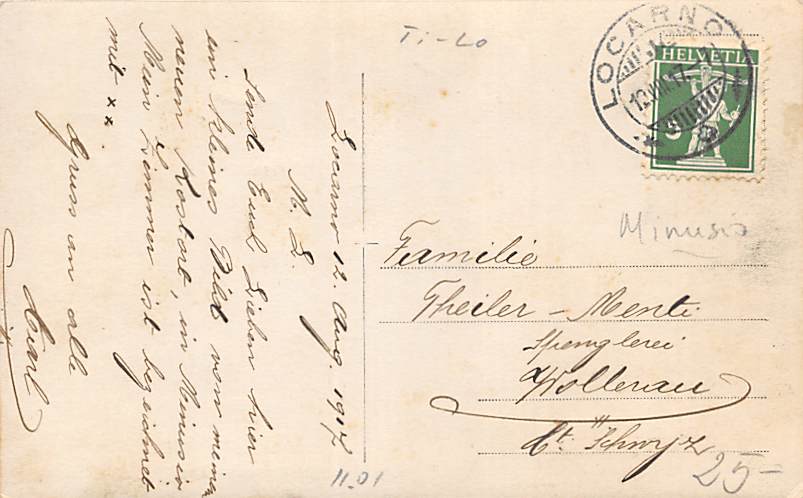 Ti-Lo
Locarno 12. Aug. 1917
M. L.
Sende Euch Lieben hier
ein kleines Bild von meinem
neuen Kostort, in Minusio
Mein Zimmer ist bezeichnet
mit xx.
Gruss an alle
Karl
11.01
LOCARNO
12.VIII.17
HELVETIA
5
Minusio
Familie
Theiler - Menti
Spenglerei
Wollerau
Kt. Schwyz
25-